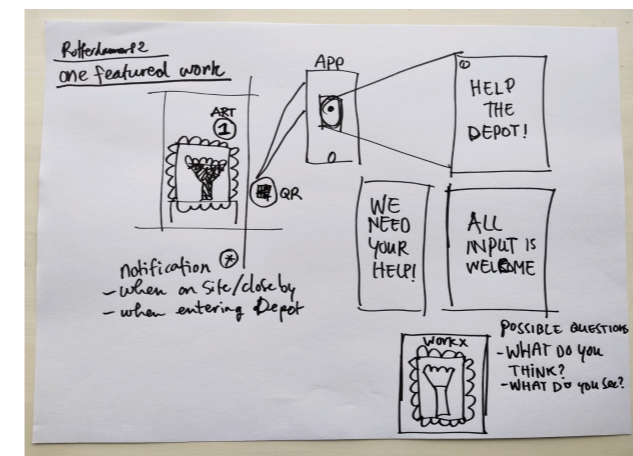 one featured work
ART
1
QR
APP
HELP
THE
DEPOT!
WE
NEED
YOUR
HELP!
ALL
INPUT IS
WELCOME
notification *
- when on site/close by
- when entering Depot
WORK X
POSSIBLE QUESTIONS
- WHAT DO YOU
THINK?
- WHAT DO YOU See?